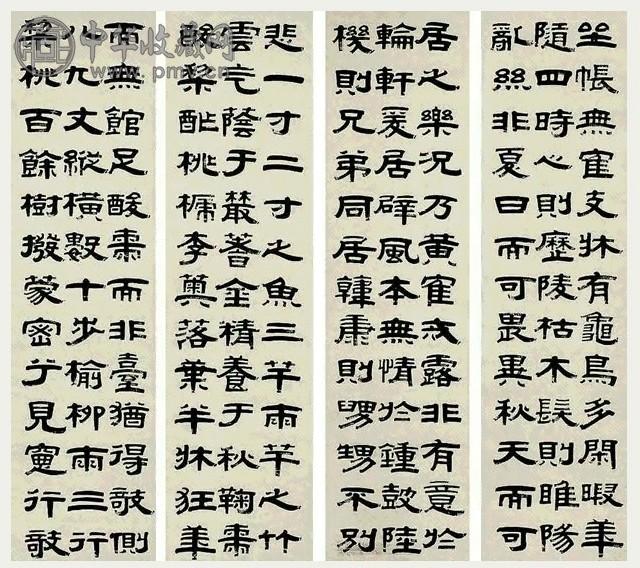 坐帳無隺支牀有龜鳥多閑暇華
隨四時心則歷陵枯木髮則睢陽
亂絲非夏日而可畏異秋天而可
居之樂況乃黃隺戒露非有意於
輪軒爰居辟風本無情於鍾鼓陸
機則兄弟同居韓康則舅甥不別
悲一寸二寸之魚三竿兩竿之竹
雲气蔭于叢蓍金精養于秋鞠棗
酸梨酢桃榹李薁落葉半牀狂華
面無館足酸棗而非臺猶得敧側
八九丈縱橫數十步榆柳兩三行
梨桃百餘樹撥蒙密兮見窗行敧
中华收藏网
www.pmv.cn